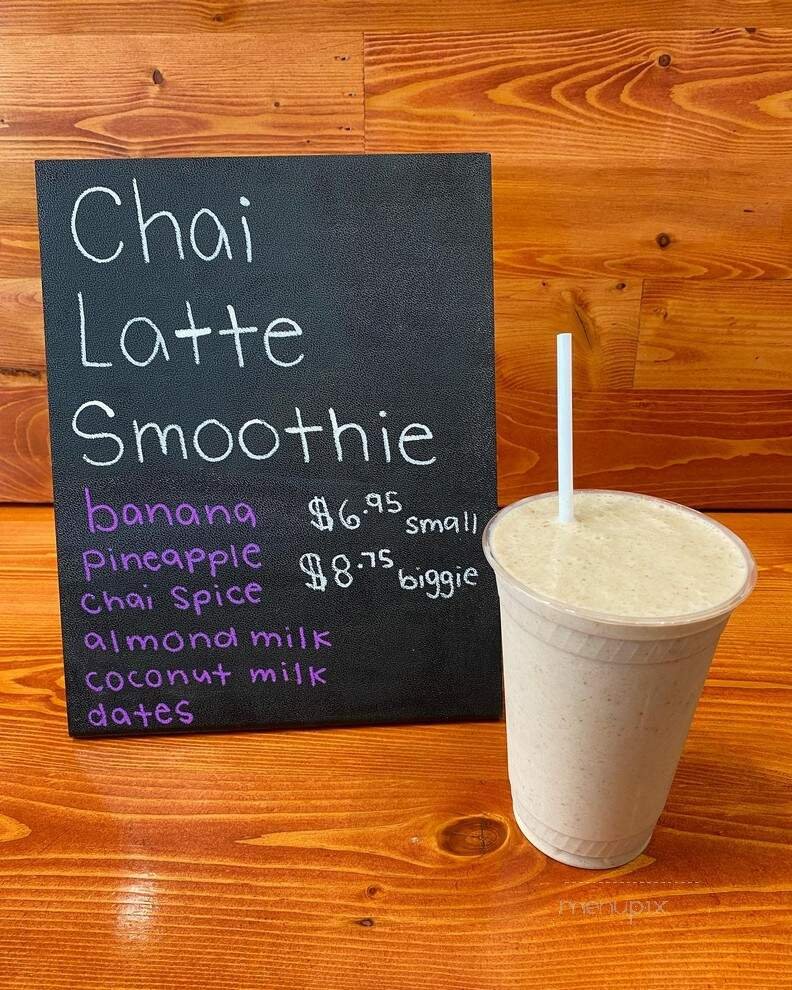 Chai
Latte
Smoothie
banana
pineapple
chai spice
almond milk
coconut milk
dates
$6.95 small
$8.75 biggie
menupix